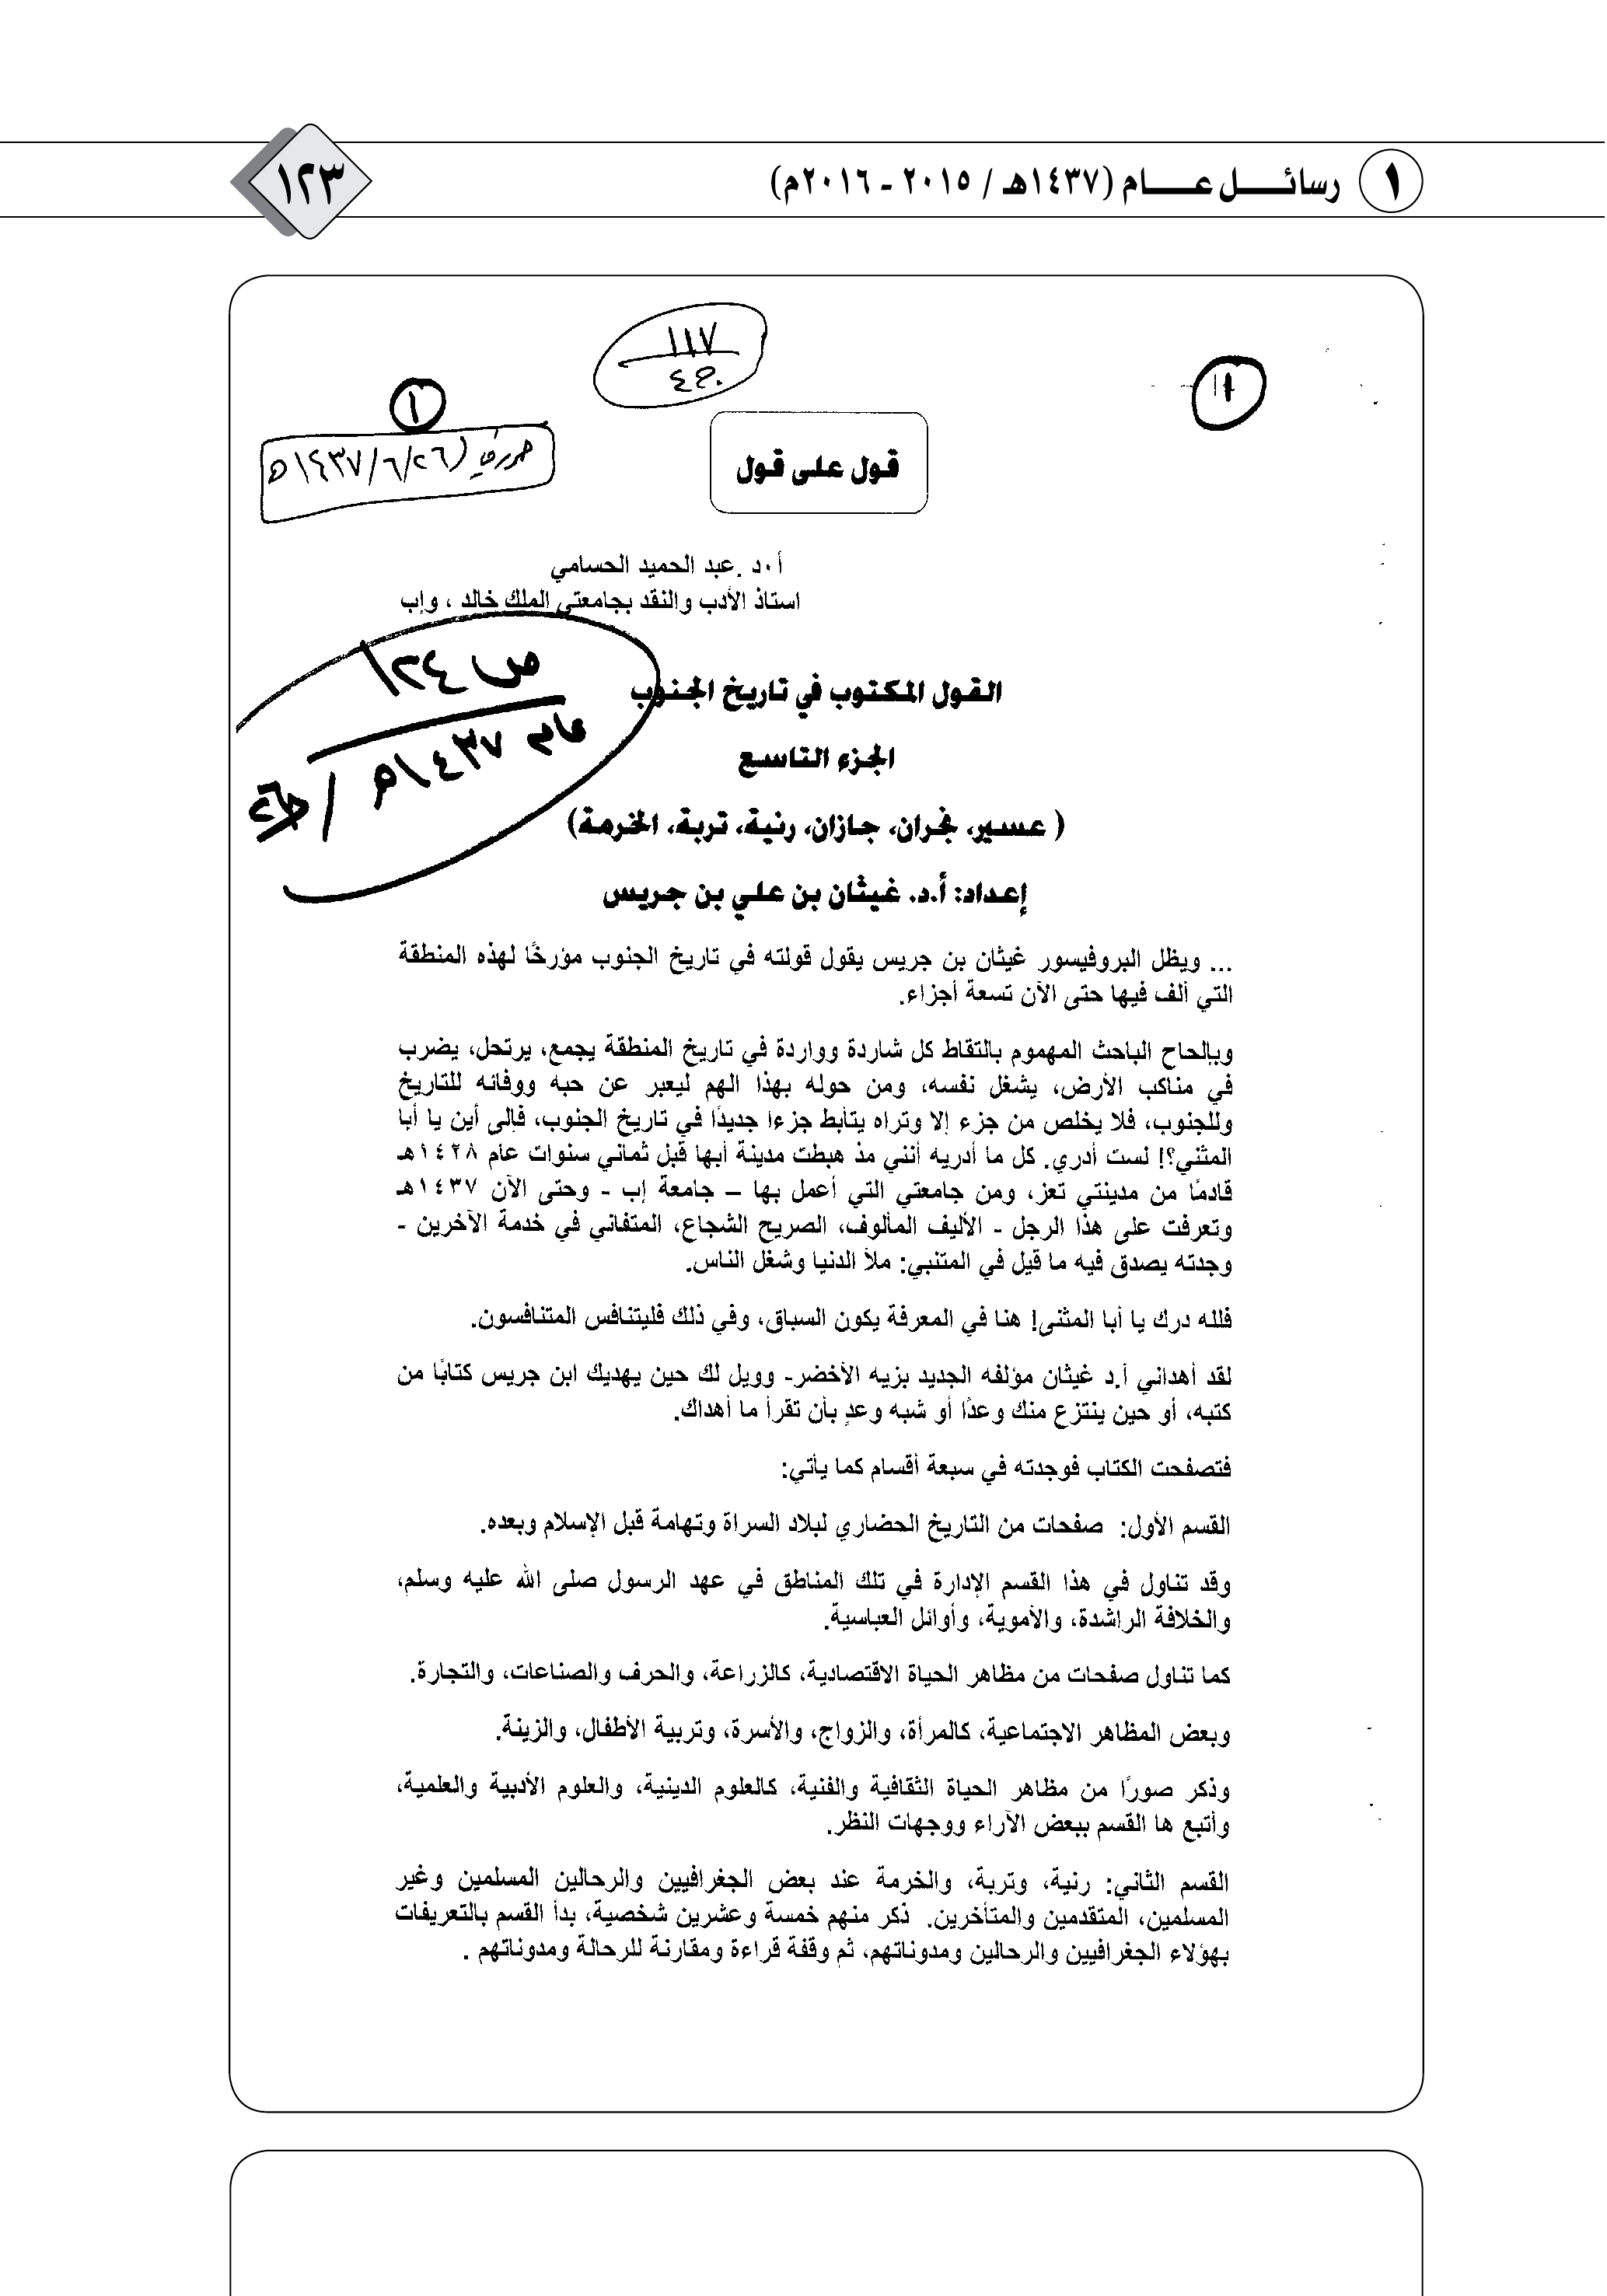 ١ رسائــــل عــــام (١٤٣٧هـ / ٢٠١٥ - ٢٠١٦م)
١٢٣
١١٧
ج٤
١
١٤٣٧/٦/٢٦هـ
قول على قول
أ.د .عبد الحميد الحسامي
استاذ الأدب والنقد بجامعتي الملك خالد ، وإب
ص ١٢٤
عام ١٤٣٧هـ /
القول المكتوب في تاريخ الجنوب
الجزء التاسع
( عسير، نجران، جازان، رنية، تربة، الخرمة)
إعداد: أ.د. غيثان بن علي بن جريس
... ويظل البروفيسور غيثان بن جريس يقول قولته في تاريخ الجنوب مؤرخًا لهذه المنطقة
التي ألف فيها حتى الآن تسعة أجزاء.
وبإلحاح الباحث المهموم بالتقاط كل شاردة وواردة في تاريخ المنطقة يجمع، يرتحل، يضرب
في مناكب الأرض، يشغل نفسه، ومن حوله بهذا الهم ليعبر عن حبه ووفائه للتاريخ
وللجنوب، فلا يخلص من جزء إلا وتراه يتأبط جزءا جديدًا في تاريخ الجنوب، فإلى أين يا أبا
المثنى؟! لست أدري. كل ما أدريه أنني مذ هبطت مدينة أبها قبل ثماني سنوات عام ١٤٢٨هـ
قادمًا من مدينتي تعز، ومن جامعتي التي أعمل بها – جامعة إب - وحتى الآن ١٤٣٧هـ
وتعرفت على هذا الرجل - الأليف المألوف، الصريح الشجاع، المتفاني في خدمة الآخرين -
وجدته يصدق فيه ما قيل في المتنبي: ملأ الدنيا وشغل الناس.
فلله درك يا أبا المثنى! هنا في المعرفة يكون السباق، وفي ذلك فليتنافس المتنافسون.
لقد أهداني أ.د غيثان مؤلفه الجديد بزيه الأخضر- وويل لك حين يهديك ابن جريس كتابًا من
كتبه، أو حين ينتزع منك وعدًا أو شبه وعدٍ بأن تقرأ ما أهداك.
فتصفحت الكتاب فوجدته في سبعة أقسام كما يأتي:
القسم الأول: صفحات من التاريخ الحضاري لبلاد السراة وتهامة قبل الإسلام وبعده.
وقد تناول في هذا القسم الإدارة في تلك المناطق في عهد الرسول صلى الله عليه وسلم،
والخلافة الراشدة، والأموية، وأوائل العباسية.
كما تناول صفحات من مظاهر الحياة الاقتصادية، كالزراعة، والحرف والصناعات، والتجارة.
وبعض المظاهر الاجتماعية، كالمرأة، والزواج، والأسرة، وتربية الأطفال، والزينة.
وذكر صورًا من مظاهر الحياة الثقافية والفنية، كالعلوم الدينية، والعلوم الأدبية والعلمية،
وأتبع ها القسم ببعض الآراء ووجهات النظر.
القسم الثاني: رنية، وتربة، والخرمة عند بعض الجغرافيين والرحالين المسلمين وغير
المسلمين، المتقدمين والمتأخرين. ذكر منهم خمسة وعشرين شخصية، بدأ القسم بالتعريفات
بهؤلاء الجغرافيين والرحالين ومدوناتهم، ثم وقفة قراءة ومقارنة للرحالة ومدوناتهم .